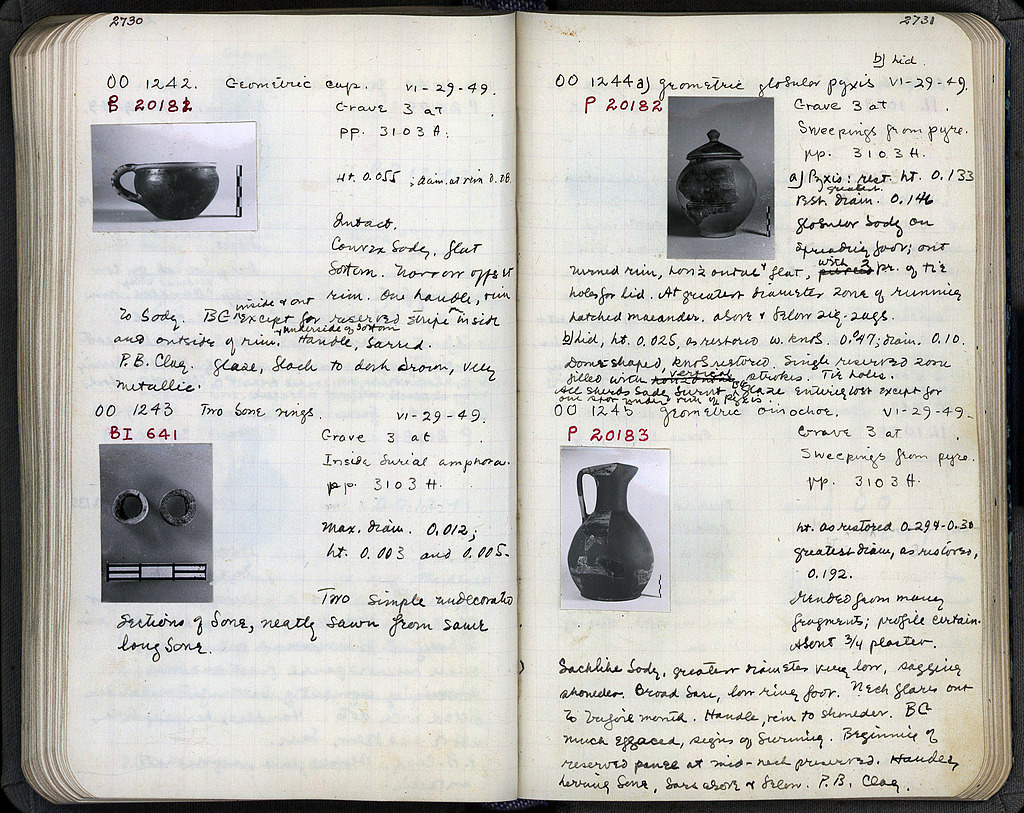 2730
OO 1242. Geometric cup. VI-29-49.
P 20181
Grave 3 at
pp. 3103 H.
Ht. 0.055; diam. at rim 0.08
Intact.
Convex body, flat
bottom. Narrow offset
inside & out
rim. One handle, rim
to body. BG except for reserved stripe inside
& underside of bottom
and outside of rim. Handle, barred.
P.B. Clay. Glaze, black to dark brown, very
metallic.
OO 1243 Two bone rings. VI-29-49.
BI 641
Grave 3 at
Inside burial amphora.
pp. 3103 H.
Max. diam. 0.012;
ht. 0.003 and 0.005.
Two simple undecorated
sections of bone, neatly sawn from same
long bone.
2731
b) lid.
OO 1244 a) Geometric globular pyxis VI-29-49.
P 20182
Grave 3 at
Sweepings from pyre.
pp. 3103 H.
a) Pyxis: rest. ht. 0.133
greatest
Est. diam. 0.146
Globular body on
spreading foot; out
turned rim, horizontal & flat, with 2 pierced pr. of tie
holes for lid. At greatest diameter zone of running
hatched maeander. above & below zig-zags.
b) lid, ht. 0.025, as restored w. knob. 0.047; diam. 0.10.
Dome shaped, knob restored. Single reserved zone
vertical
filled with horizontal strokes. Tie holes.
All sherds badly burnt & glaze entirely lost except for
one spot under rim of pyxis.
OO 1245 Geometric oinochoe. VI-29-49.
P 20183
Grave 3 at
Sweepings from pyre.
pp. 3103 H.
ht. as restored 0.294-0.30
greatest diam, as restored,
0.192.
Mended from many
fragments; profile certain.
About 3/4 plaster.
Sacklike body, greatest diameter very low, sagging
shoulder. Broad base, low ring foot. Neck flares out
to trefoil mouth. Handle, rim to shoulder. BG
much effaced, signs of burning. Beginning of
reserved panel at mid-neck preserved. Handle,
herring bone, bars above & below. P.B. Clay.